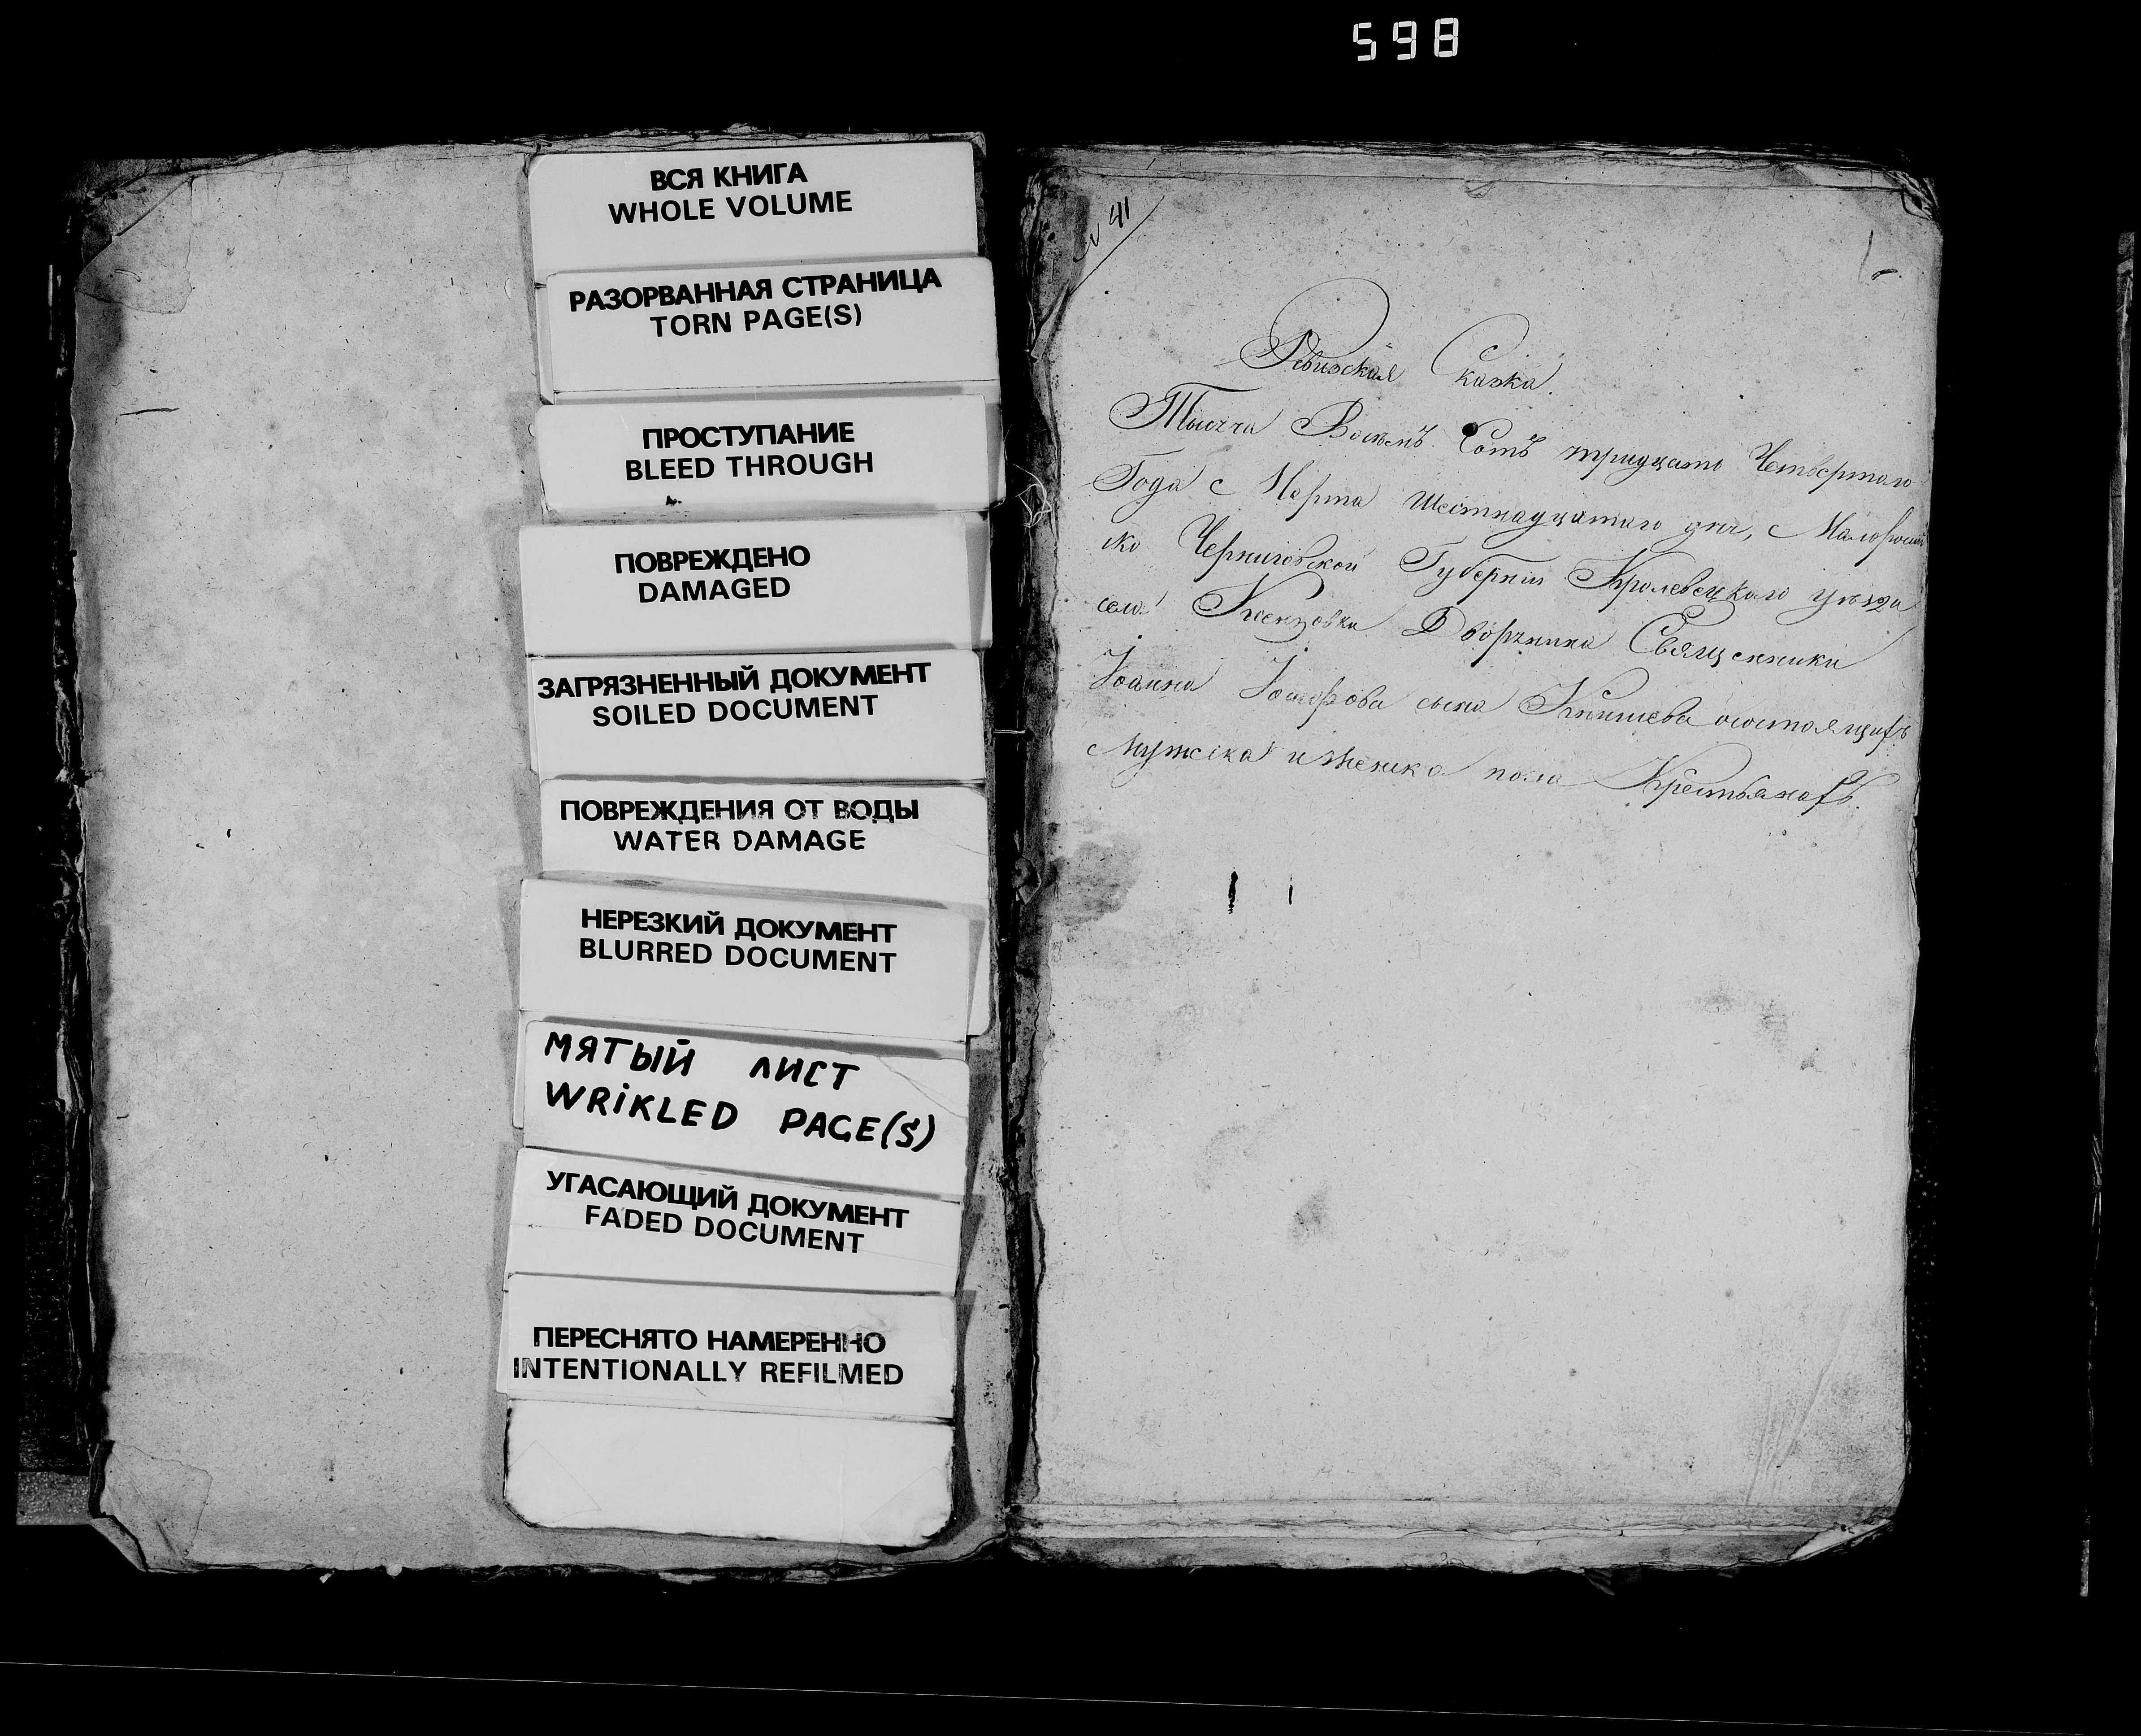 598
ВСЯ КНИГА
WHOLE VOLUME
РАЗОРВАННАЯ СТРАНИЦА
TORN PAGE(S)
ПРОСТУПАНИЕ
BLEED THROUGH
ПОВРЕЖДЕНО
DAMAGED
ЗАГРЯЗНЕННЫЙ ДОКУМЕНТ
SOILED DOCUMENT
ПОВРЕЖДЕНИЯ ОТ ВОДЫ
WATER DAMAGE
НЕРЕЗКИЙ ДОКУМЕНТ
BLURRED DOCUMENT
МЯТЫЙ ЛИСТ
WRiKLED PAGE(S)
УГАСАЮЩИЙ ДОКУМЕНТ
FADED DOCUMENT
ПЕРЕСНЯТО НАМЕРЕННО
INTENTIONALLY REFILMED
41
Ревизская Сказка.
Тысяча Восемъ Сотъ тридцать Четвертаго
Года с Марта Шестнадцатаго дня, с Малоросій
ско Черниговской Губерніи Кролевецкаго уезда
села Дворянина Священника
Іоанна сына состоящихъ
Мужска и женска пола Крестьянахъ.